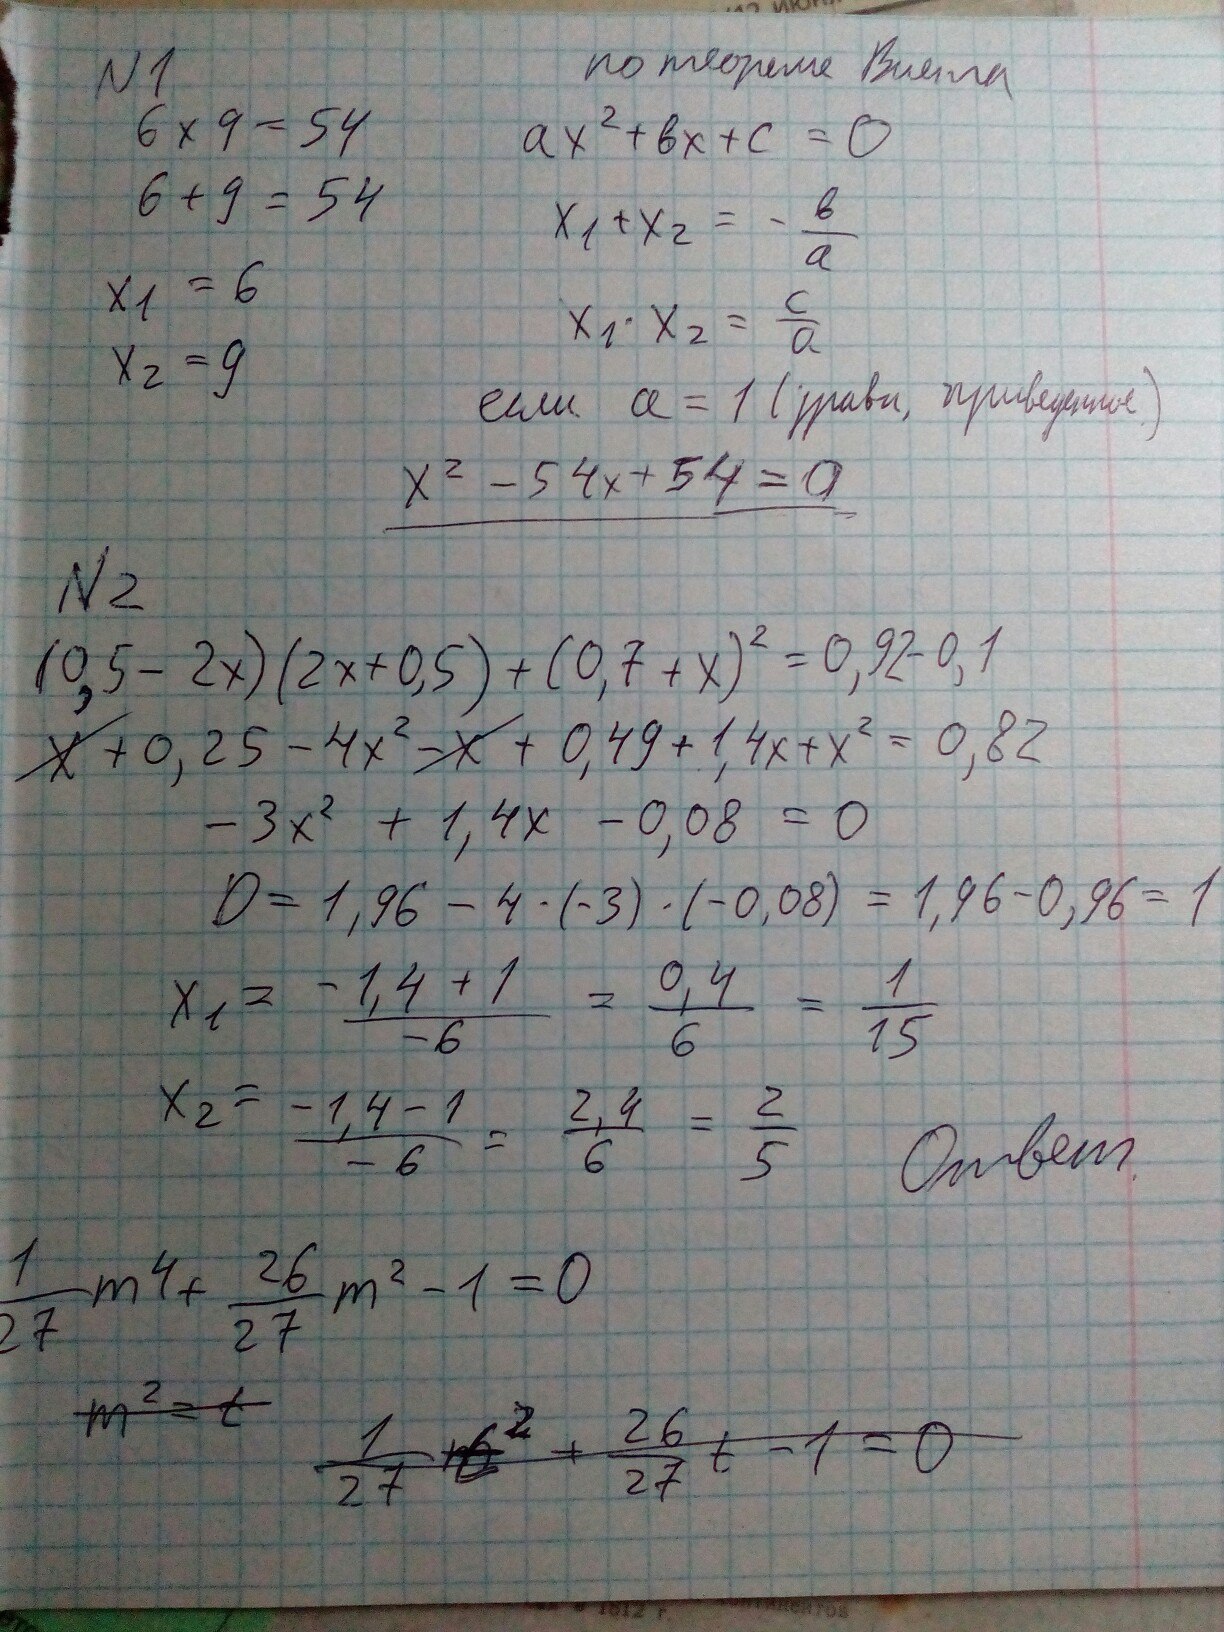 N1
6 x 9 = 54
6 + 9 = 54
x₁ = 6
x₂ = 9
по теореме Виета
ax² + вx + c = 0
x₁ + x₂ = - в/a
x₁ · x₂ = c/a
если a = 1 (уравн, приведенное)
x² - 54x + 54 = 0
N2
(0,5 - 2x)(2x + 0,5) + (0,7 + x)² = 0,92 - 0,1
x + 0,25 - 4x² - x + 0,49 + 1,4x + x² = 0,82
- 3x² + 1,4x - 0,08 = 0
D = 1,96 - 4 · (-3) · (-0,08) = 1,96 - 0,96 = 1
x₁ = (-1,4 + 1)/(-6) = 0,4/6 = 1/15
x₂ = (-1,4 - 1)/(-6) = 2,4/6 = 2/5
Ответ
1/27 m⁴ + 26/27 m² - 1 = 0
m² = t
1/27 t² + 26/27 t - 1 = 0